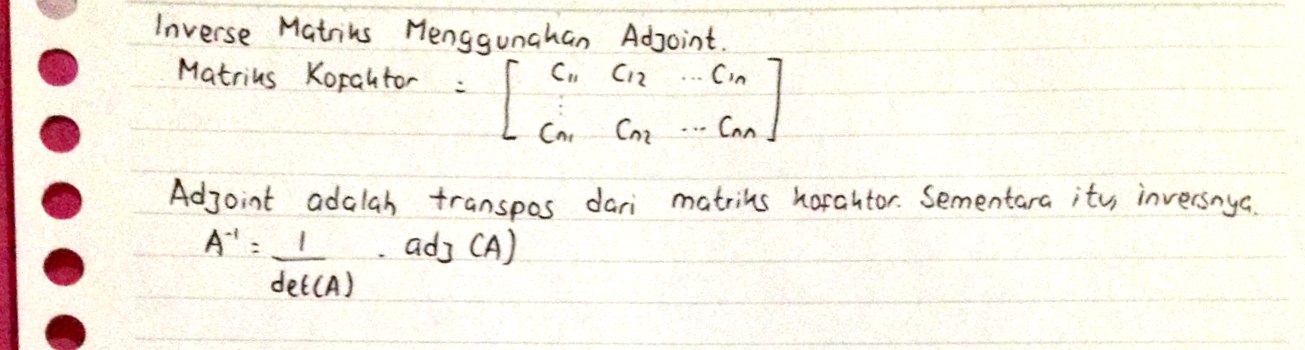 Inverse Matriks Menggunakan Adjoint.
Matriks Kofaktor = [ C11 C12 ... C1n
⋮
Cn1 Cn2 ... Cnn ]
Adjoint adalah transpos dari matriks kofaktor. Sementara itu, inversnya.
A⁻¹ = 1/det(A) . adj (A)